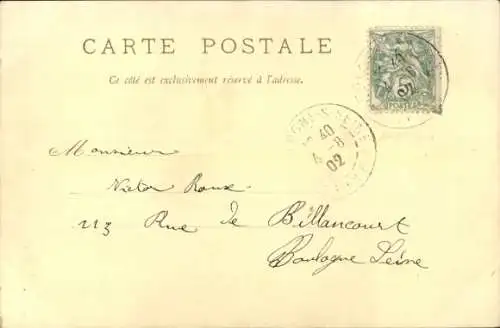 CARTE POSTALE
Ce côté est exclusivement réservé à l'adresse.
5
POSTES
40
6 - 8
02
Monsieur
Victor Roux
113 Rue de Billancourt
Boulogne Seine